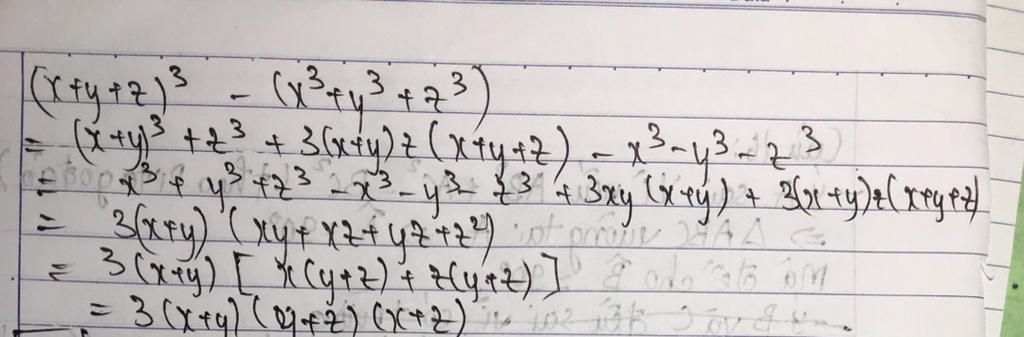 (x+y+z)³ - (x³+y³+z³)
= (x+y)³ + z³ + 3(x+y)z(x+y+z) - x³-y³-z³
= x³+y³+z³-x³-y³-z³ + 3xy(x+y) + 3(x+y)z(x+y+z)
= 3(x+y)(xy+xz+yz+z²)
= 3(x+y)[x(y+z)+z(y+z)]
= 3(x+y)(y+z)(x+z)